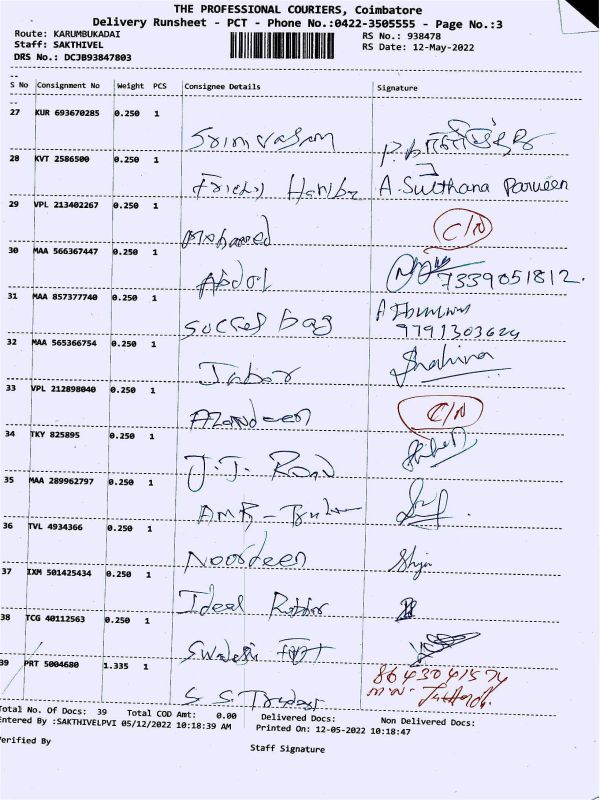 THE PROFESSIONAL COURIERS, Coimbatore
Delivery Runsheet - PCT - Phone No.:0422-3505555 - Page No.:3
Route: KARUMBUKADAI RS No.: 938478
Staff: SAKTHIVEL RS Date: 12-May-2022
DRS No.: DCJB93847803
S No Consignment No Weight PCS Consignee Details Signature
27 KUR 693670285 0.250 1
28 KVT 2586500 0.250 1
A. Sulthana Parveen
29 VPL 213402267 0.250 1
Mohamed C/N
30 MAA 566367447 0.250 1
Abdol 7339051812.
31 MAA 857377740 0.250 1
soccer bag
9791303624
32 MAA 565366754 0.250 1
Jabar Shahina
33 VPL 212898040 0.250 1
Azardeen C/N
34 TKY 825895 0.250 1
J.J. Road
35 MAA 289962797 0.250 1
AMR -
36 TVL 4934366 0.250 1
Noordeen
37 IXM 501425434 0.250 1
Ideal
38 TCG 40112563 0.250 1
39 PRT 5004680 1.335 1
S S Traders
Total No. Of Docs: 39 Total COD Amt: 0.00 Delivered Docs: Non Delivered Docs:
Entered By :SAKTHIVELPVI 05/12/2022 10:18:39 AM Printed On: 12-05-2022 10:18:47
Verified By
Staff Signature